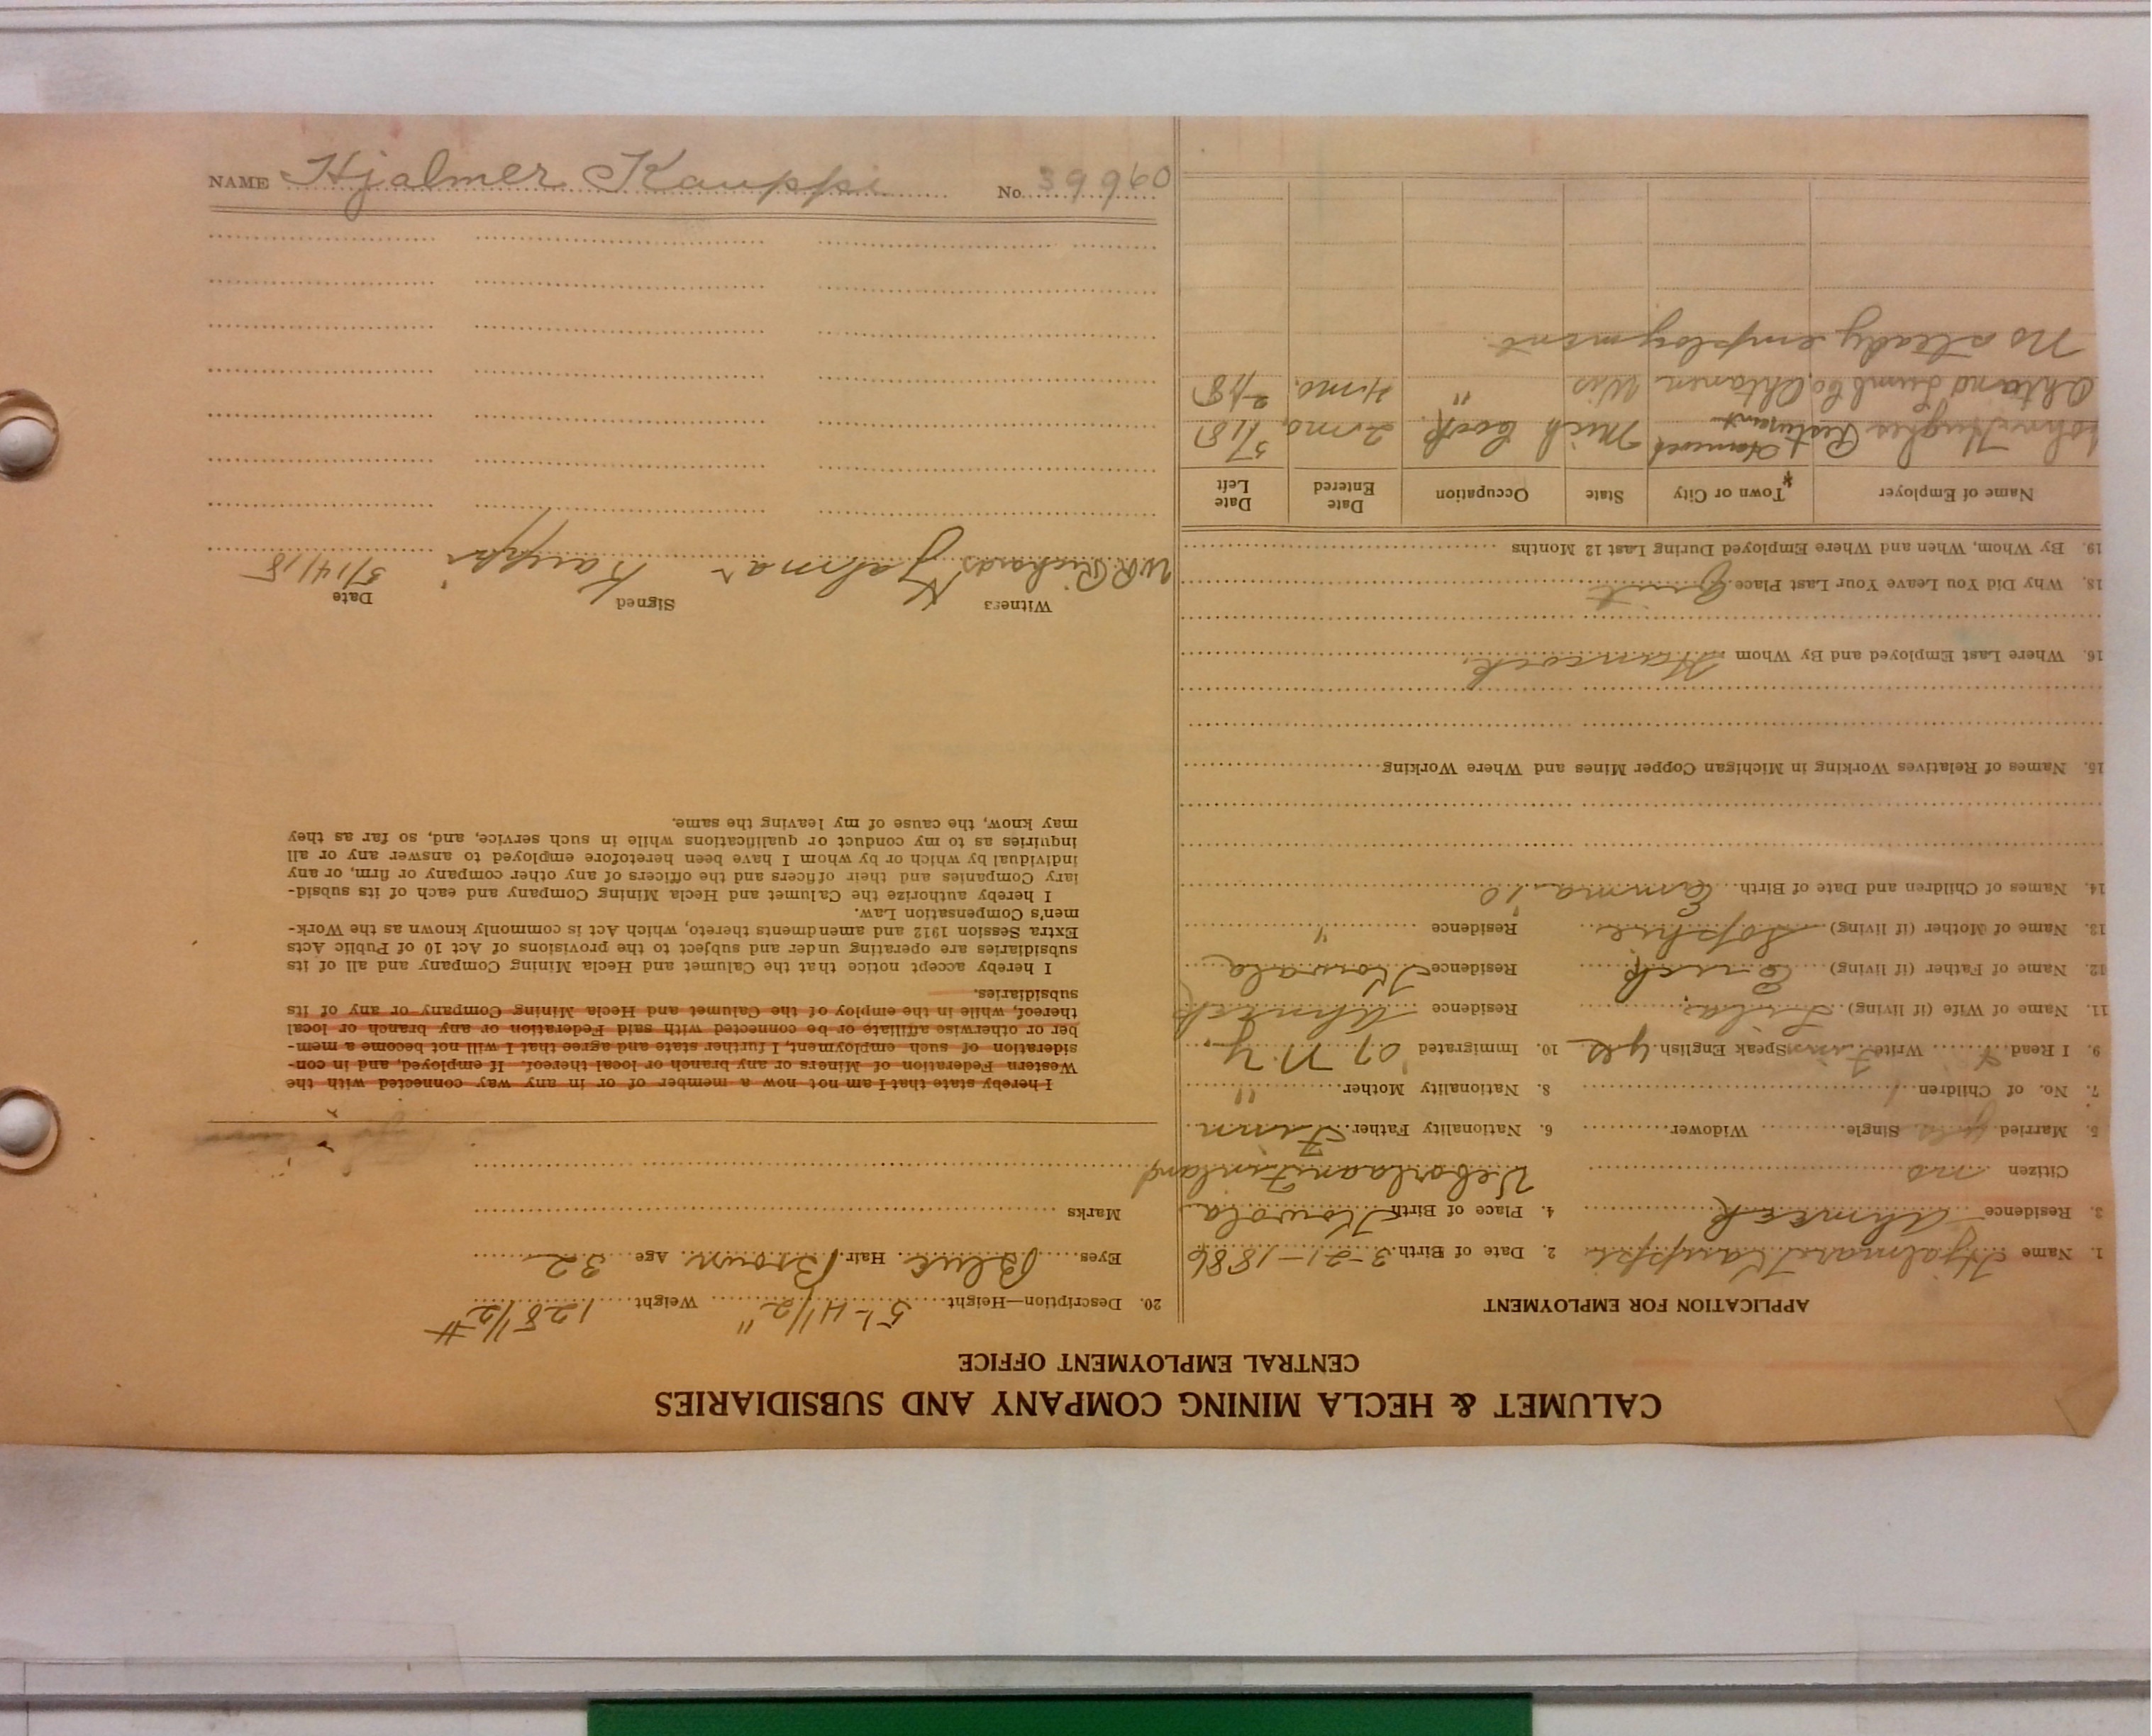 CALUMET & HECLA MINING COMPANY AND SUBSIDIARIES
CENTRAL EMPLOYMENT OFFICE
APPLICATION FOR EMPLOYMENT
1. Name Hjalmar Kauppi 2. Date of Birth 3-21-1886
3. Residence Ahmeek 4. Place of Birth Kowola
Citizen no Finland
5. Married yes Single Widower 6. Nationality Father Finn
7. No. of Children 1 8. Nationality Mother "
9. I Read Write Finn Speak English yes 10. Immigrated 07 N.Y.
11. Name of Wife (if living) Residence Ahmeek
12. Name of Father (if living) Erick Residence Kowala
13. Name of Mother (if living) Sophie Residence "
14. Names of Children and Date of Birth 10
15. Names of Relatives Working in Michigan Copper Mines and Where Working
16. Where Last Employed and By Whom Hancock.
18. Why Did You Leave Your Last Place Quit
19. By Whom, When and Where Employed During Last 12 Months
Name of Employer Town or City State Occupation Date Entered Date Left
John Hughes Resturant Hancock Mich Cook 2 mo. 5/18
Lumb Co. Wis " 4 mo. 2/18
No steady employment.
20. Description—Height 5'-4 1/2" Weight 128 1/2 #
Eyes Blue Hair Brown Age 32
Marks
I hereby state that I am not now a member of or in any way connected with the
Western Federation of Miners or any branch or local thereof. If employed, and in con-
sideration of such employment, I further state and agree that I will not become a mem-
ber or otherwise affiliate or be connected with said Federation or any branch or local
thereof, while in the employ of the Calumet and Hecla Mining Company or any of its
subsidiaries.
I hereby accept notice that the Calumet and Hecla Mining Company and all of its
subsidiaries are operating under and subject to the provisions of Act 10 of Public Acts
Extra Session 1912 and amendments thereto, which Act is commonly known as the Work-
men's Compensation Law.
I hereby authorize the Calumet and Hecla Mining Company and each of its subsid-
iary Companies and their officers and the officers of any other company or firm, or any
individual by which or by whom I have been heretofore employed to answer any or all
inquiries as to my conduct or qualifications while in such service, and, so far as they
may know, the cause of my leaving the same.
Witness Signed Date
W.R. Richards Hjalmar Kauppi 5/14/18
NAME Hjalmer Kauppi No. 39960